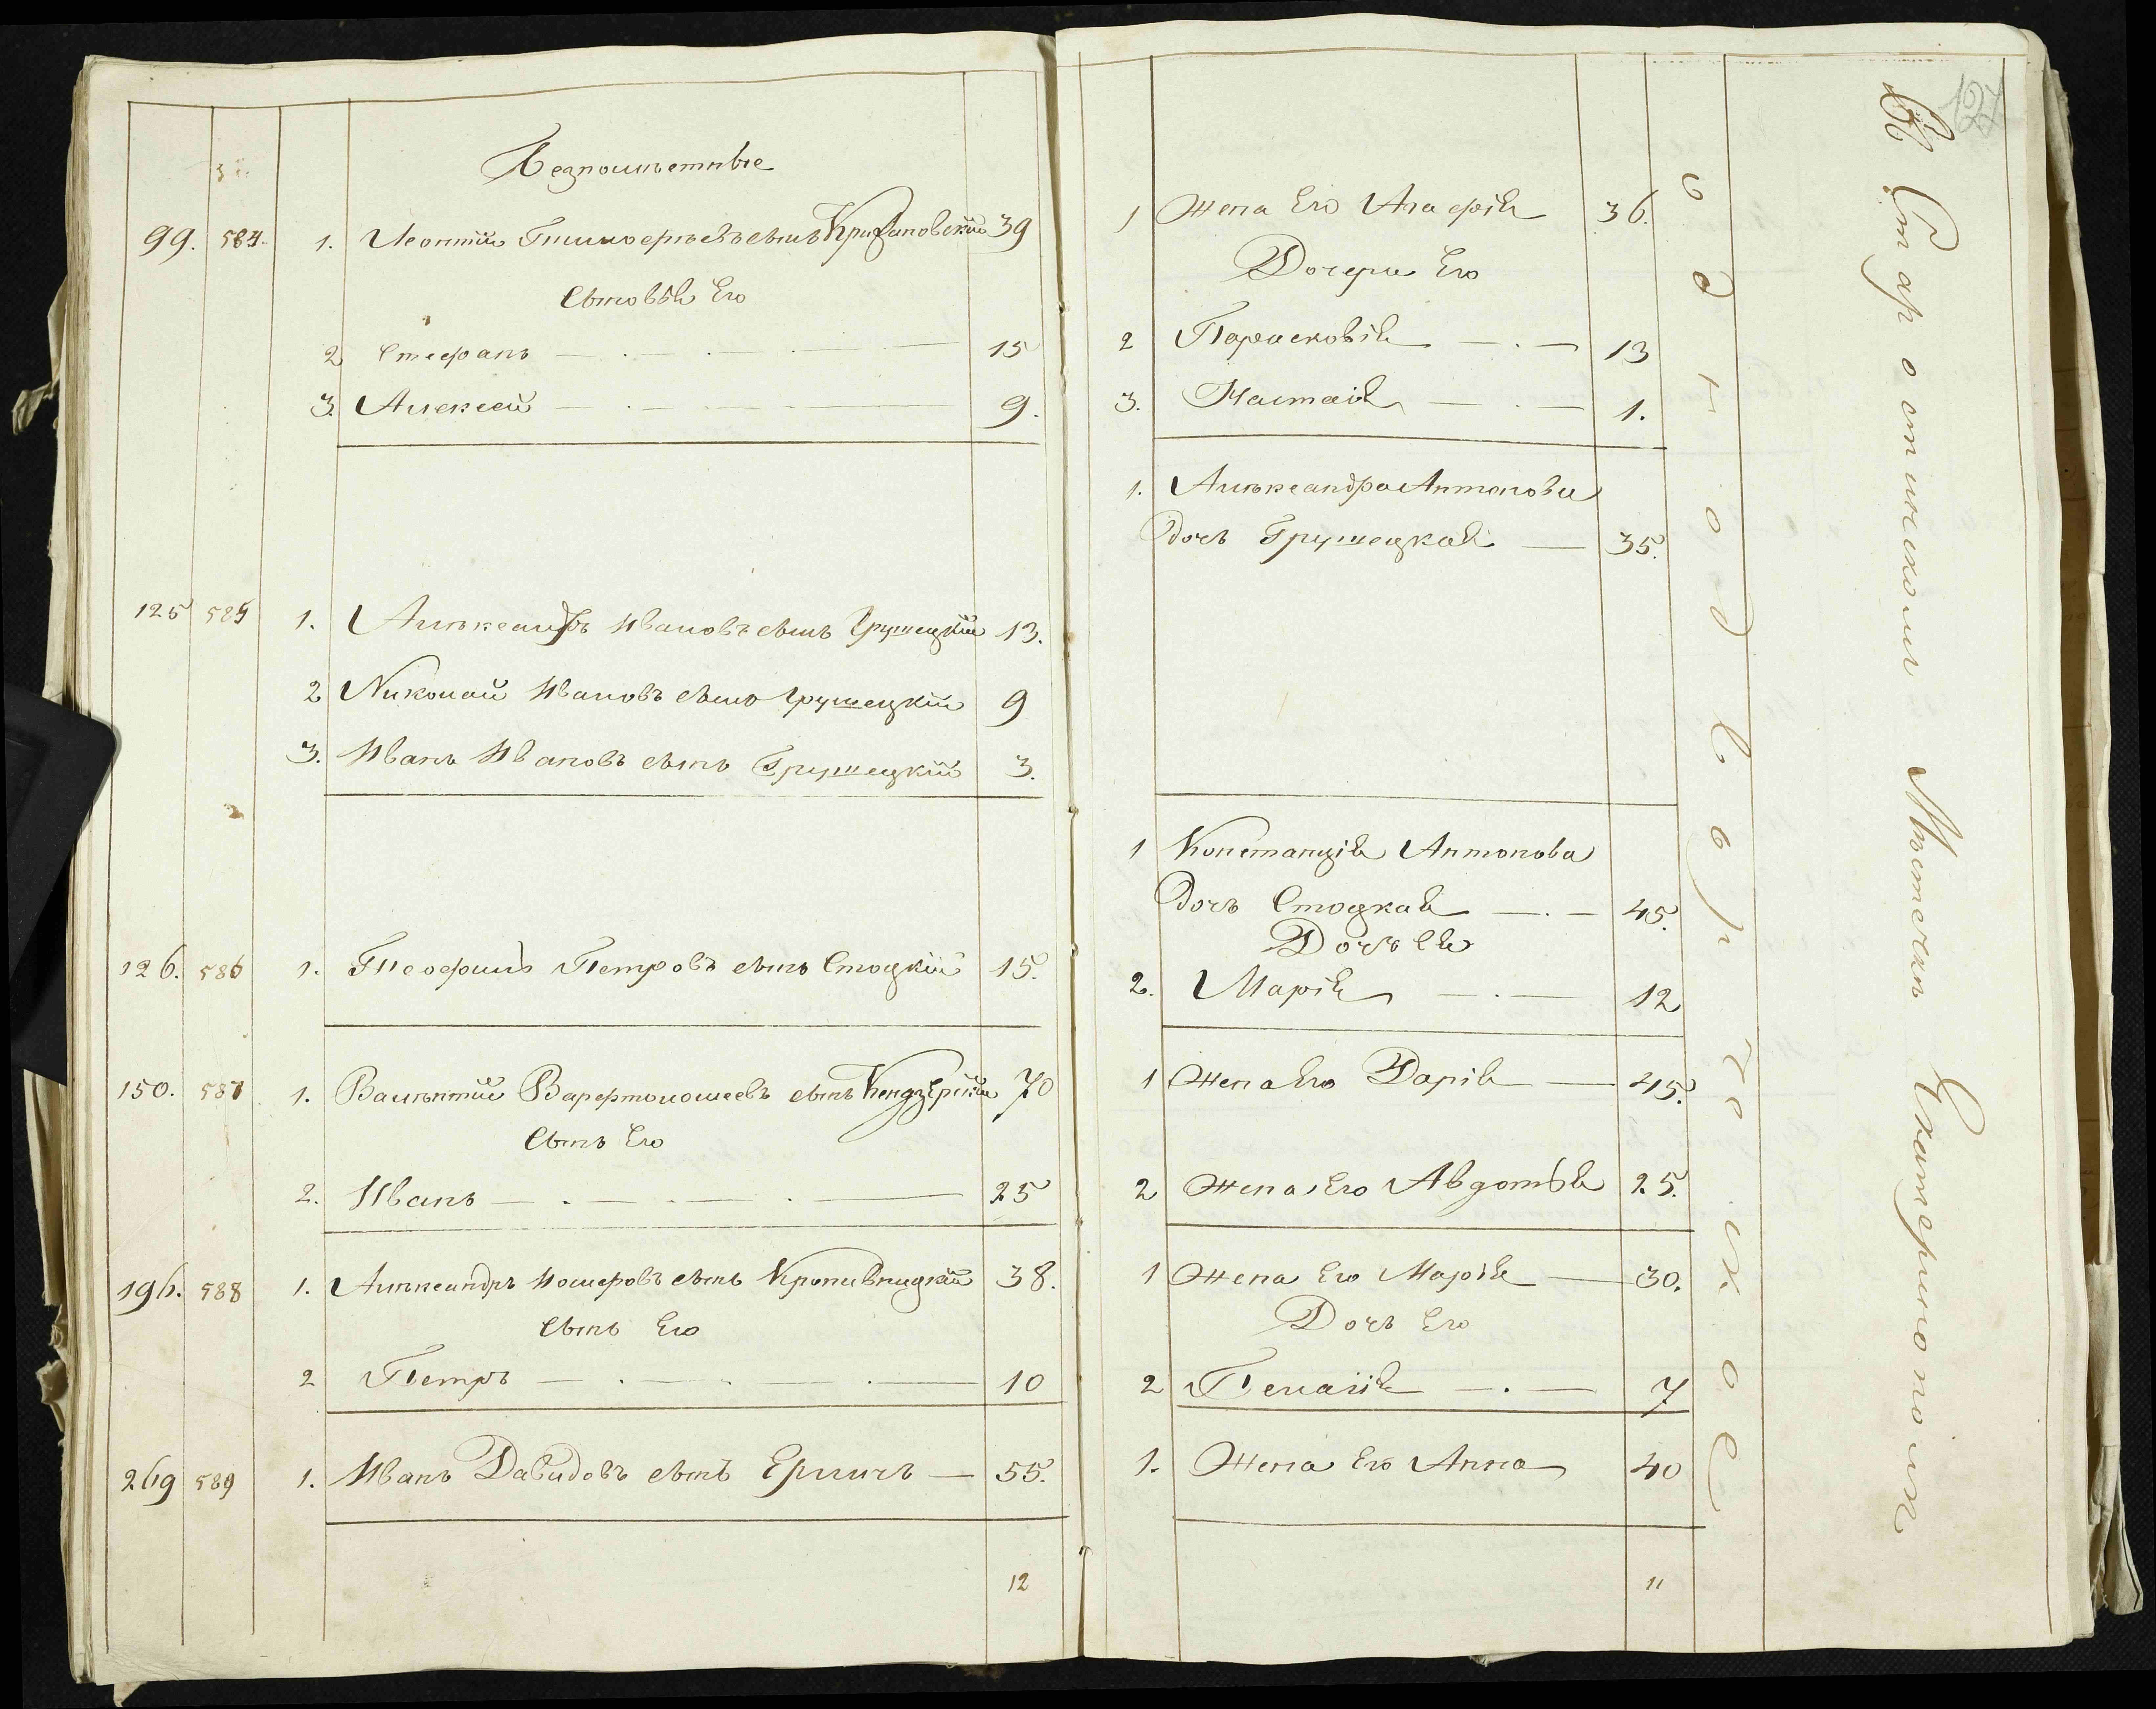 127
Безпомѣстные
99. 584. 1. Леонтій Тимоѳеевъ сынъ Кризановскій 39
Сыновья Его
2 Стефанъ — . — . — 15
3. Алексей — . — . — 9.
125 585 1. Александръ Ивановъ сынъ Грушецкій 13.
2 Николай Ивановъ сынъ Грушецкій 9
3. Иванъ Ивановъ сынъ Грушецкій 3.
126. 586 1. Теофилъ Петровъ сынъ Стоцкій 15.
150. 587 1. Валентій Варфтоломеевъ сынъ 70
Сынъ Его
2. Иванъ — . — . — 25
196. 588 1. Александръ Іосифовъ сынъ Кропивницкій 38.
Сынъ Его
2 Петръ — . — . — 10
269 589 1. Иванъ Давидовъ сынъ — 55.
12
1 Жена Его Агафія 36.
Дочери Его
2 Парасковія — . — 13
3. Настасія — . — 1.
1. Александра Антонова
дочь Грушецкая — 35.
1 Констанція Антонова
дочь Стоцкая — . — 45.
Дочь Ея
2. Марія — . — 12
1 Жена Его Дарія — 45.
2 Жена Его Авдотья 25.
1 Жена Его Марія — 30.
Дочь Его
2 Пелагія — . — 7
1. Жена Его Анна 40
11
В Старостинскомъ Мѣстечкѣ Екатеринополѣ